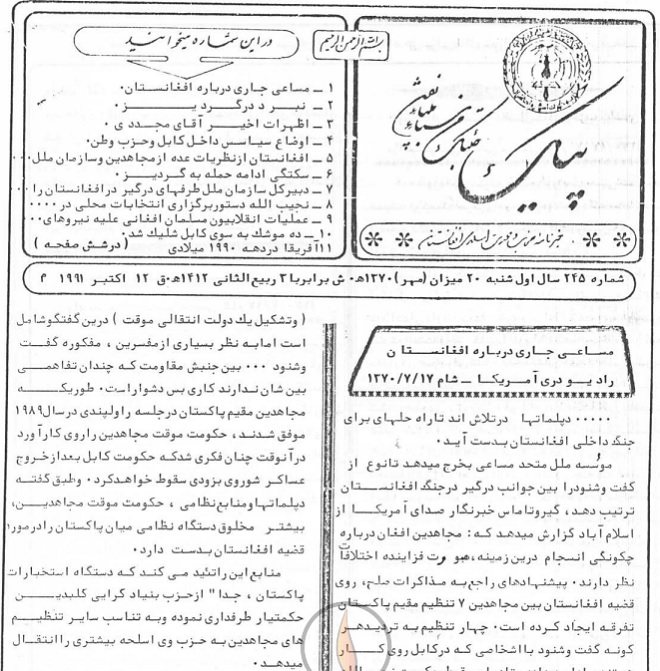 بسم الله الرحمن الرحیم
پیام
خبرنامه
در این شماره میخوانید
۱ ــ مساعی جاری درباره افغانستان.
۲ ــ نبرد در گردیز.
۳ ــ اظهرات اخیر آقای مجددی.
۴ ــ اوضاع سیاسی داخل کابل وحزب وطن.
۵ ــ افغانستان ازنظریات عده ازمجاهدین وسازمان ملل...
۶ ــ سکتگی ادامه حمله به گردیز.
۷ ــ دبیرکل سازمان ملل طرفهای درگیر درافغانستان را...
۸ ــ نجیب الله دستوربرگزاری انتخابات محلی در....
۹ ــ عملیات انقلابیون مسلمان افغانی علیه نیروهای...
۱۰ ــ ده موشک به سوی کابل شلیک شد.
۱۱ آفریقا دردهه ۱۹۹۰ میلادی ( درشش صفحه )
شماره ۲۴۵ سال اول شنبه ۲۰ میزان (مهر) ۱۳۷۰ه‍.ش برابربا ۳ ربیع الثانی ۱۴۱۲ه‍.ق ۱۲ اکتبر ۱۹۹۱ م
مساعی جاری درباره افغانستان
رادیودری آمریکا ــ شام ۱۳۷۰/۷/۱۷
..... دپلماتها درتلاش اند تاراه حلهای برای
جنگ داخلی افغانستان بدست آید.
موسسه ملل متحد مساعی بخرج میدهد تانوع از
گفت وشنودرا بین جوانب درگیر درجنگ افغانستان
ترتیب دهد، گیروتاماس خبرنگار صدای آمریکا از
اسلام آباد گزارش میدهد که: مجاهدین افغان درباره
چگونگی انسجام درین زمینه، فزاینده اختلاف
نظر دارند. پیشنهادهای راجع به مذاکرات صلح، روی
قضیه افغانستان بین مجاهدین ۷ تنظیم مقیم پاکستان
تفرقه ایجاد کرده است. چهار تنظیم به تردید هر
گونه گفت وشنود بااشخاصی که درکابل روی کار
( وتشکیل یك دولت انتقالی موقت ) درین گفتگوشامل
است امابه نظر بسیاری ازمفسرین ، مفکوره گفت
وشنود ... بین جنبش مقاومت که چندان تفاهمی
بین شان ندارند کاری بس دشوار است. طوریکه
مجاهدین مقیم پاکستان درجلسه راولپندی درسال ۱۹۸۹
موفق شدند ، حکومت موقت مجاهدین راروی کارآورد
درآنوقت چنان فکری شدکه حکومت کابل بعداز خروج
عساکر شوروی بزودی سقوط خواهدکرد. وطبق گفته
دپلماتهاومنابع نظامی ، حکومت موقت مجاهدین،
بیشتر مخلوق دستگاه نظامی میان پاکستان رادرمورد
قضیه افغانستان بدست دارد.
منابع این راتئید می کند که دستگاه استخبارات
پاکستان ، جدا" ازحزب بنیاد گرایی گلبدین
حکمتیار طرفداری نموده وبه تناسب سایر تنظیم
های مجاهدین به حزب وی اسلحه بیشتری را انتقال
میدهد.